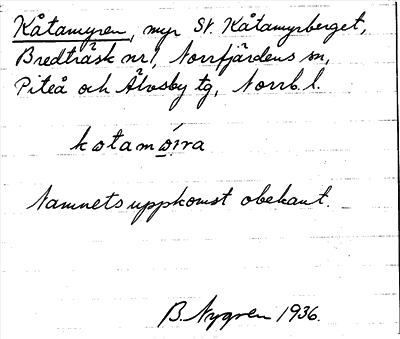 Kåtamyren, myr St. Kåtamyrberget,
Bredträsk nr 1, Norrfjärdens sn,
Piteå och Älvsby tg, Norrb. l.
kotamöra
Namnets uppkomst obekant.
B. Nygren 1936.